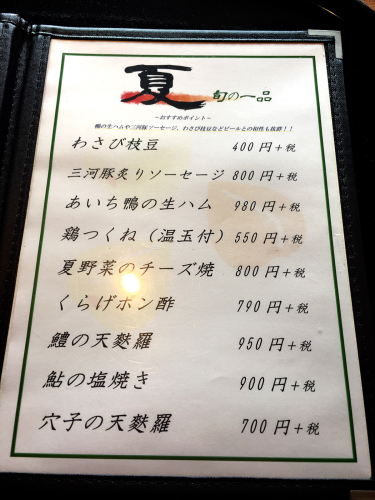 夏 旬の一品
~おすすめポイント~
鴨の生ハムや三河豚ソーセージ、わさび枝豆などビールとの相性も抜群!!
わさび枝豆 400円+税
三河豚炙りソーセージ 800円+税
あいち鴨の生ハム 980円+税
鶏つくね(温玉付) 550円+税
夏野菜のチーズ焼 800円+税
くらげポン酢 790円+税
鱧の天麩羅 950円+税
鮎の塩焼き 900円+税
穴子の天麩羅 700円+税